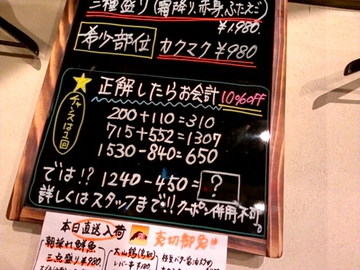 三種盛り(霜降り、赤身、ふたえご)
¥1,980.
希少部位 カクマク ¥980
チャンスは1回
正解したらお会計 10%OFF
200+110=310
715+552=1307
1530-840=650
では!? 1240-450=?
詳しくはスタッフまで!! クーポン併用不可。
本日直送入荷
売切御免
朝採れ鮮魚
三点盛り¥980